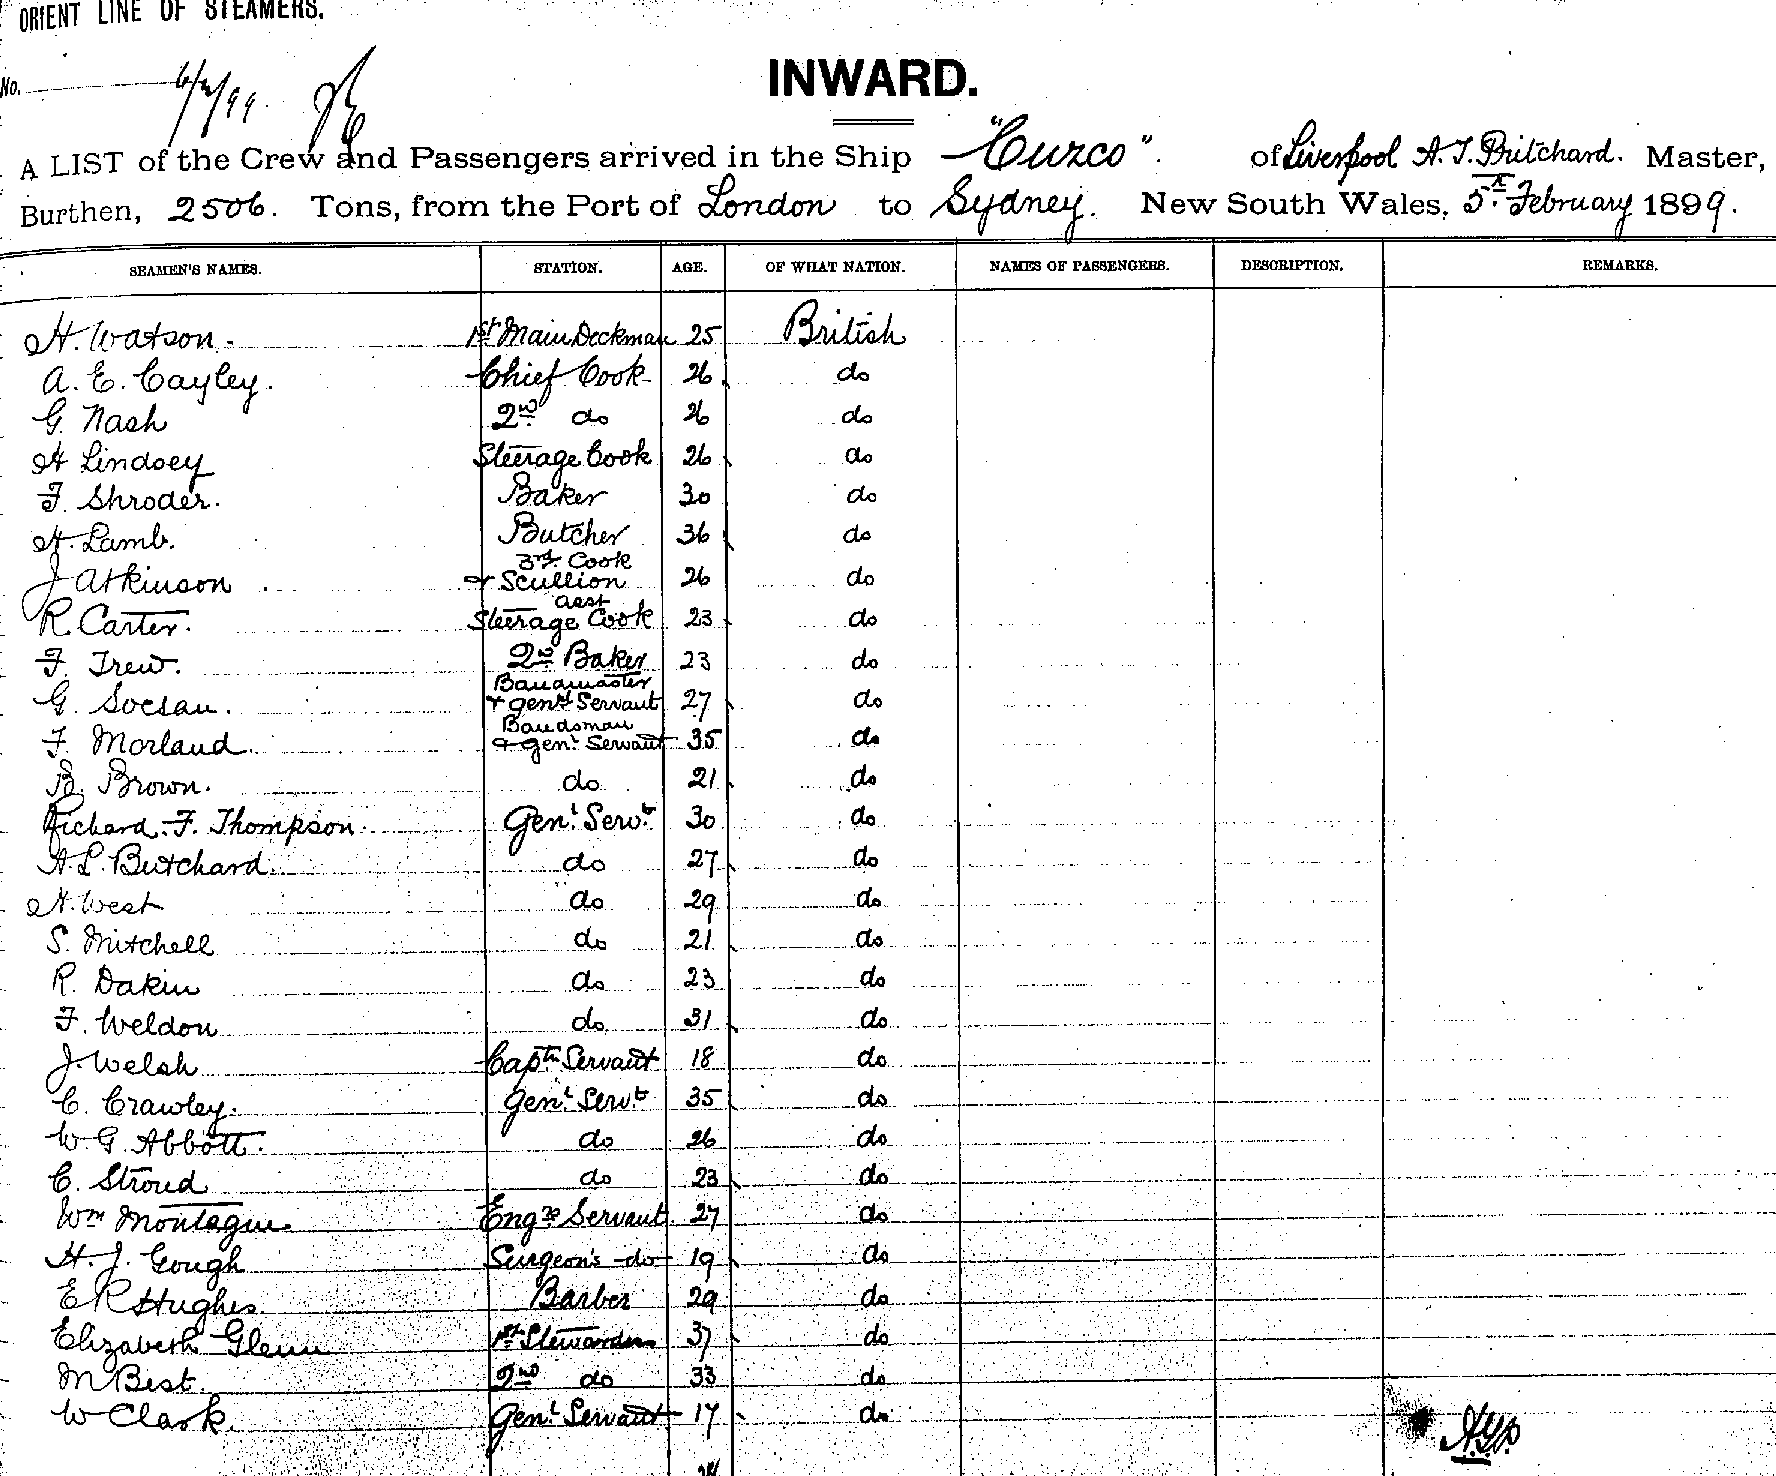 ORIENT LINE OF STEAMERS.
No. 6/2/99.
INWARD.
A LIST of the Crew and Passengers arrived in the Ship "Cuzco". of Liverpool A. J. Pritchard. Master,
Burthen, 2506. Tons, from the Port of London to Sydney. New South Wales, 5th February 1899.
SEAMEN'S NAMES. STATION. AGE. OF WHAT NATION. NAMES OF PASSENGERS. DESCRIPTION. REMARKS.
H. Watson. 1st Main Deckman 25 British
A. E. Cayley. Chief Cook 26 do
G. Nash 2nd do 26 do
H Lindsey Steerage Cook 26 do
F. Shroder. Baker 30 do
H. Lamb. Butcher 36 do
J Atkinson 3rd Cook & Scullion 26 do
R. Carter. asst Steerage Cook 23 do
F. Trew. 2nd Baker 23 do
G. Soesan. Bandmaster & genl Servant 27 do
F. Morland Bandsman & genl Servant 35 do
B. Brown. do 21 do
Richard. F. Thompson Genl Servt 30 do
A. L. Butchard. do 27 do
H. West do 29 do
S. Mitchell do 21 do
R. Dakin do 23 do
F. Weldon do 31 do
J. Welsh Captn Servant 18 do
C. Crawley. Genl Servt 35 do
W. G. Abbott. do 26 do
C. Stroud do 23 do
Wm Montague Engrs Servant 27 do
H. J. Gough Surgeon's do 19 do
E R Hughes. Barber 29 do
Elizabeth Glenn 1st Stewardess 37 do
M Best. 2nd do 33 do
W Clark. Genl Servant 17 do